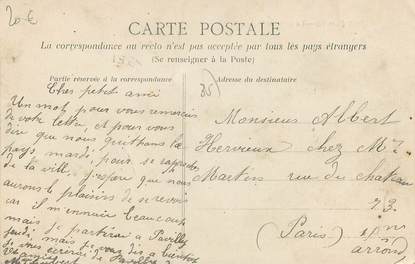 20€
CARTE POSTALE
La correspondance au recto n'est pas acceptée par tous les pays étrangers
(Se renseigner à la Poste)
Partie réservée à la correspondance
Adresse du destinataire
35
Cher petit ami
Un mot pour vous remercier
de votre lettre, et pour vous
dire que nous quittons le
pays mardi, pour se rapprocher
de ta ville, j'espère que nous
aurons le plaisirs de se revoir
car il m'ennuie beaucoup
mais de partir à Pavilly
jeudi mais je vous dis à bientôt
si vous écrirez de Pavilly
Monsieur Albert
Hervieux chez Mr
Martin rue du château
73.
(Paris) 14ms
arrond